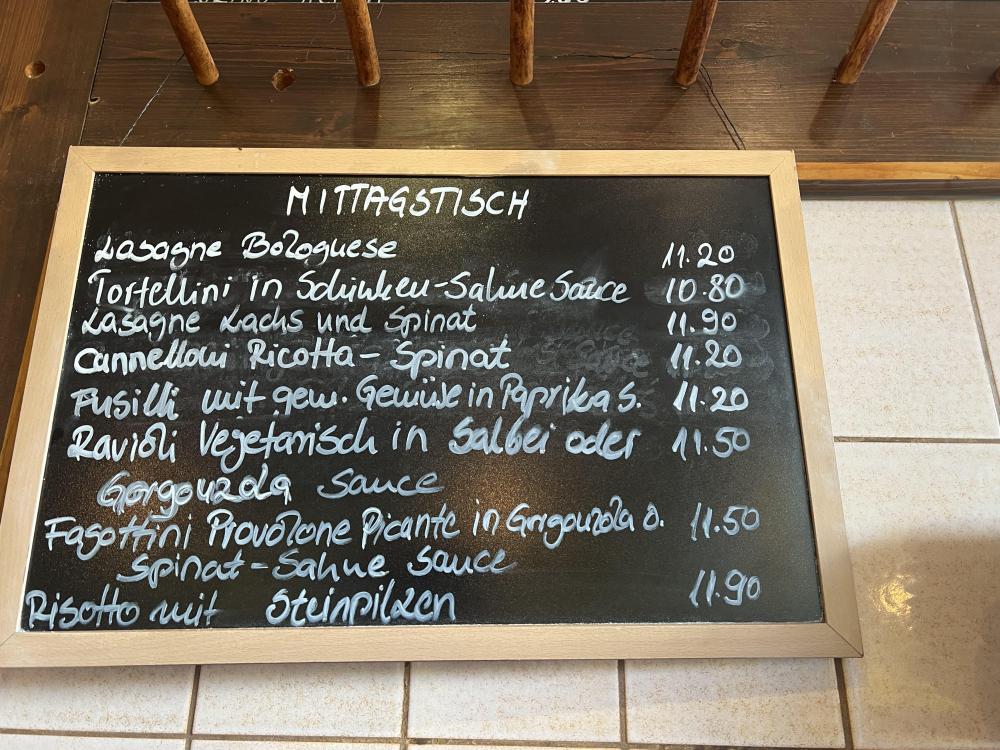 MITTAGSTISCH
Lasagne Bolognese 11.20
Tortellini in Schinken-Sahne Sauce 10.80
Lasagne Lachs und Spinat 11.90
Cannelloni Ricotta-Spinat 11.20
Fusilli mit gem. Gemüse in Paprika S. 11.20
Ravioli Vegetarisch in Salbei oder 11.50
Gorgonzola Sauce
Fagottini Provolone Picante in Gorgonzola o. 11.50
Spinat-Sahne Sauce
Risotto mit Steinpilzen 11.90